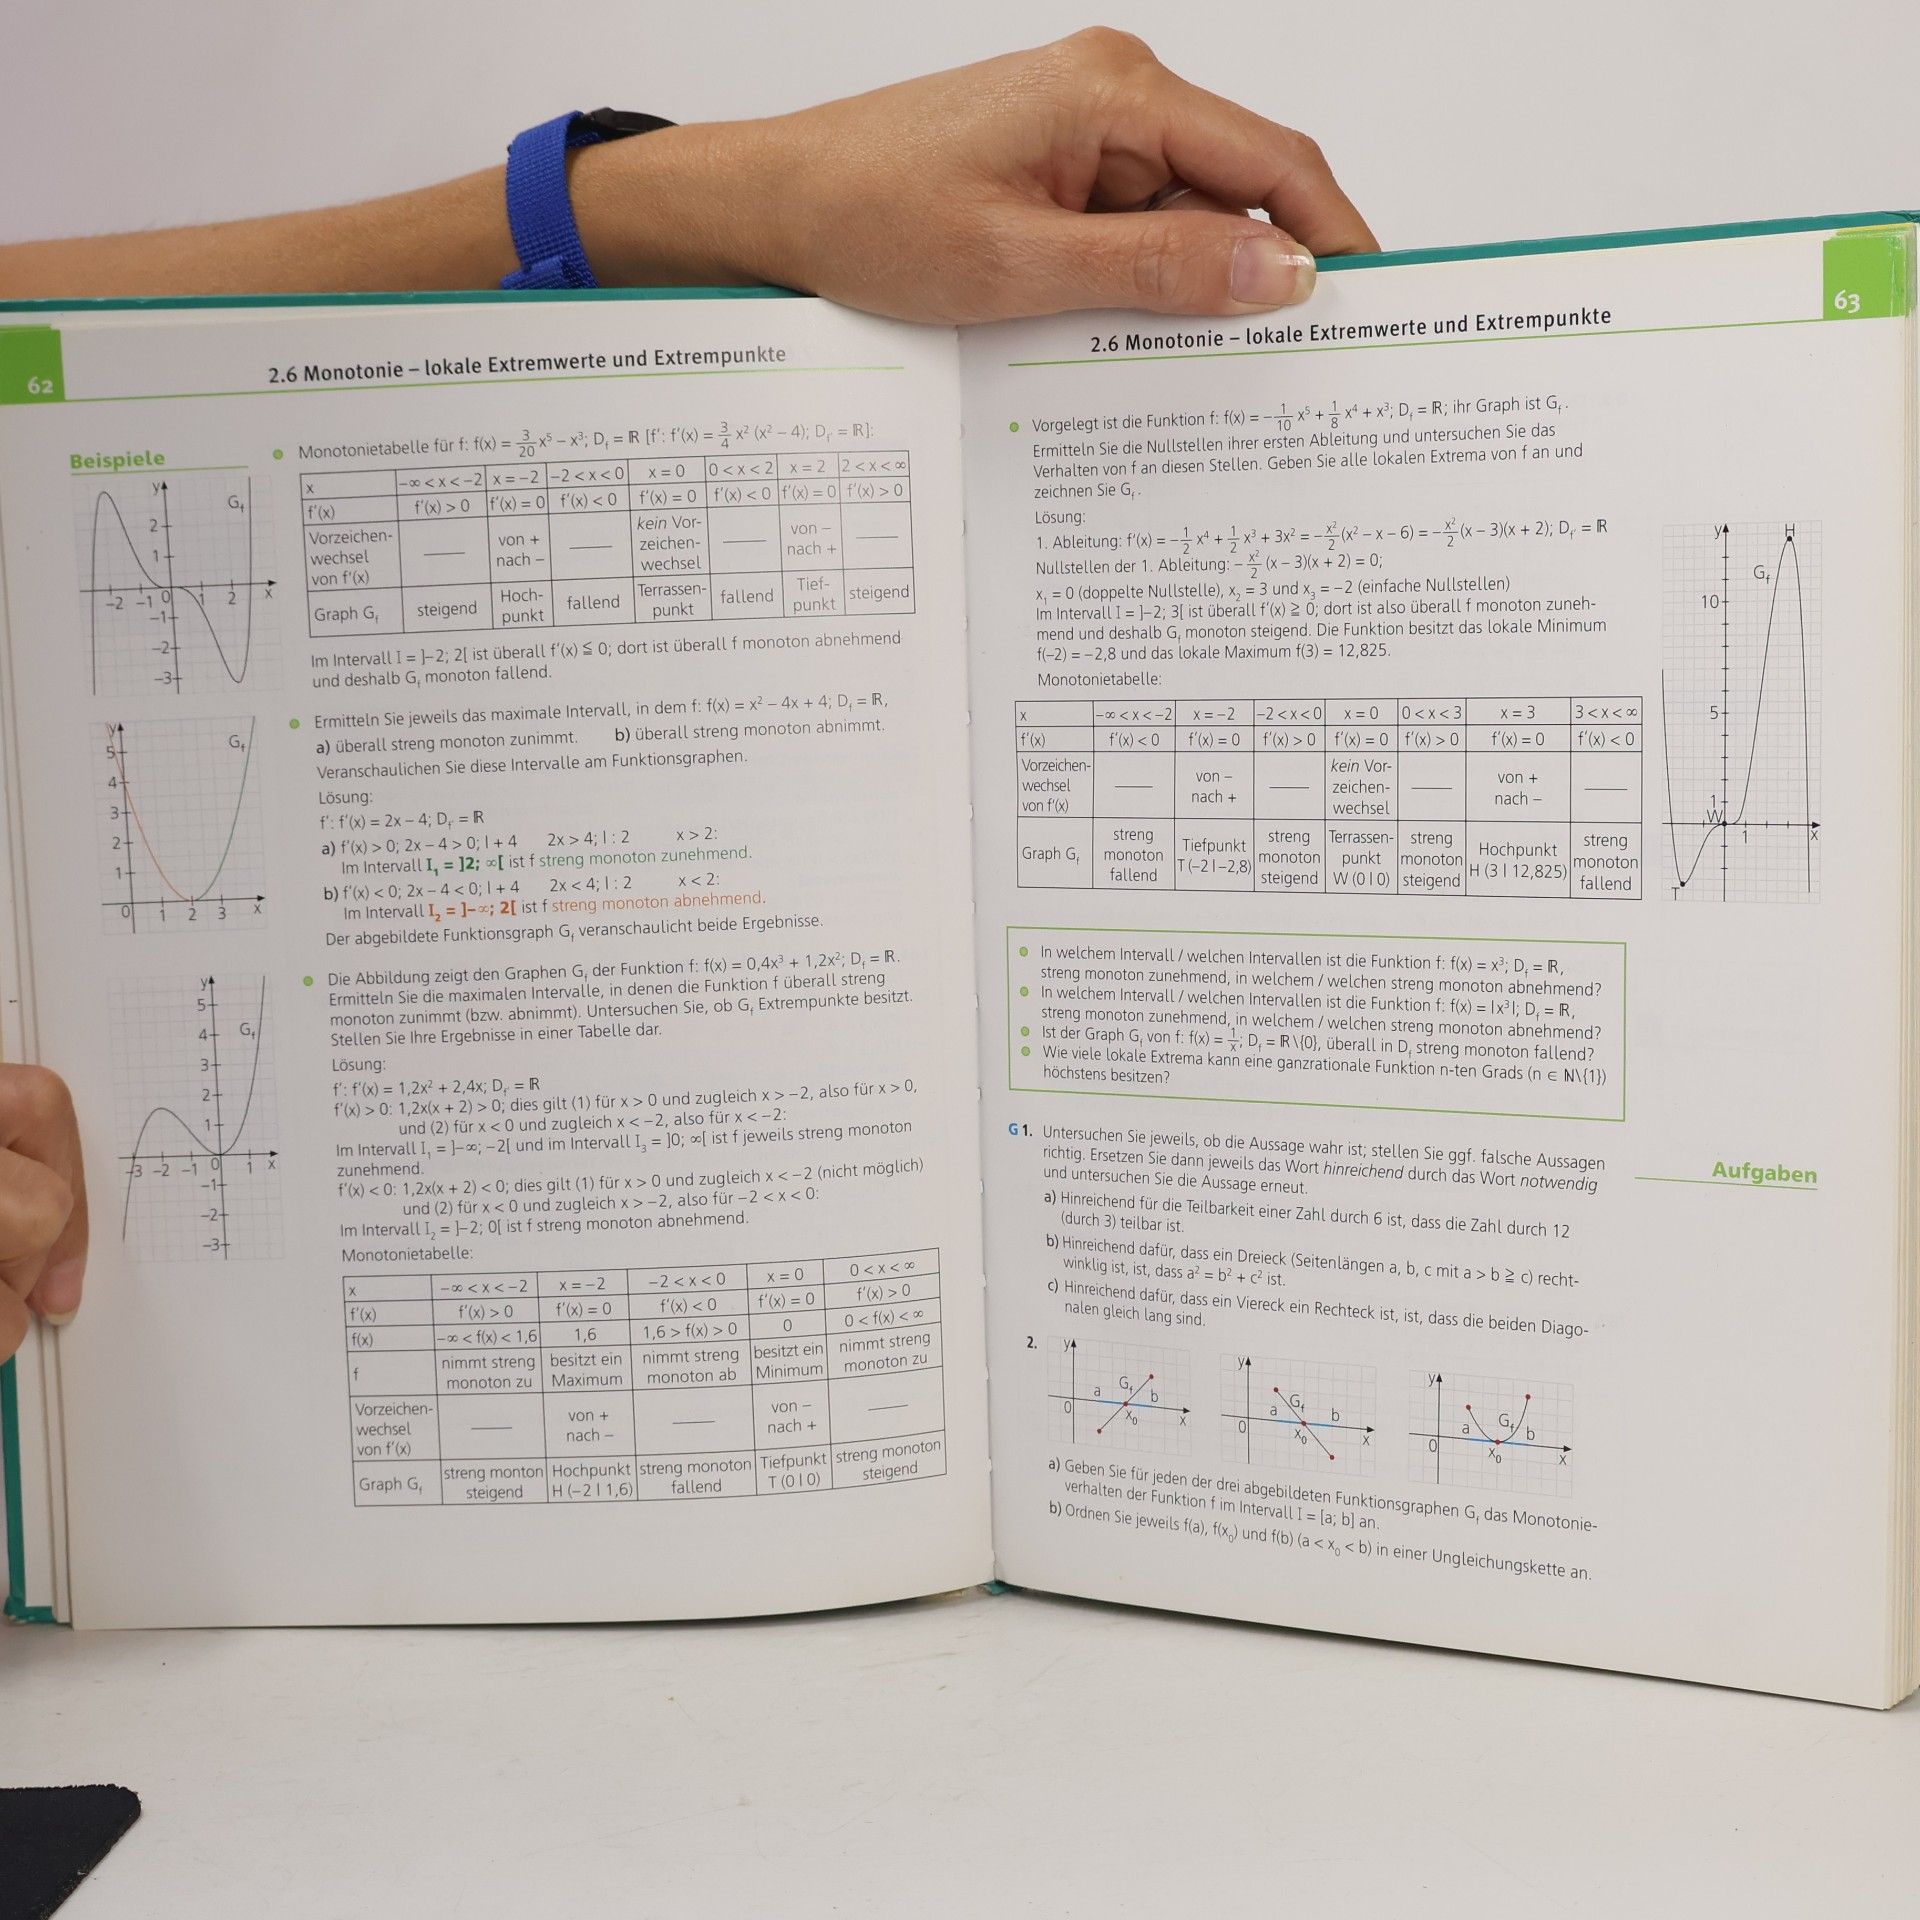 62
2.6 Monotonie – lokale Extremwerte und Extrempunkte
Beispiele
Monotonietabelle für f: f(x) = 3/20 x⁵ – x³; D_f = ℝ [f′: f′(x) = 3/4 x² (x² – 4); D_f′ = ℝ]:
x –∞ < x < –2 x = –2 –2 < x < 0 x = 0 0 < x < 2 x = 2 2 < x < ∞
f′(x) f′(x) > 0 f′(x) = 0 f′(x) < 0 f′(x) = 0 f′(x) < 0 f′(x) = 0 f′(x) > 0
Vorzeichenwechsel von f′(x) —— von + nach – —— kein Vorzeichenwechsel —— von – nach + ——
Graph G_f steigend Hochpunkt fallend Terrassenpunkt fallend Tiefpunkt steigend
y G_f 2 1 –2 –1 0 1 2 x –1 –2 –3
Im Intervall I = ]–2; 2[ ist überall f′(x) ≦ 0; dort ist überall f monoton abnehmend
und deshalb G_f monoton fallend.
Ermitteln Sie jeweils das maximale Intervall, in dem f: f(x) = x² – 4x + 4; D_f = ℝ,
a) überall streng monoton zunimmt. b) überall streng monoton abnimmt.
Veranschaulichen Sie diese Intervalle am Funktionsgraphen.
Lösung:
f′: f′(x) = 2x – 4; D_f′ = ℝ
a) f′(x) > 0; 2x – 4 > 0; | + 4 2x > 4; | : 2 x > 2:
Im Intervall I₁ = ]2; ∞[ ist f streng monoton zunehmend.
b) f′(x) < 0; 2x – 4 < 0; | + 4 2x < 4; | : 2 x < 2:
Im Intervall I₂ = ]–∞; 2[ ist f streng monoton abnehmend.
Der abgebildete Funktionsgraph G_f veranschaulicht beide Ergebnisse.
y G_f 5 4 3 2 1 0 1 2 3 x
Die Abbildung zeigt den Graphen G_f der Funktion f: f(x) = 0,4x³ + 1,2x²; D_f = ℝ.
Ermitteln Sie die maximalen Intervalle, in denen die Funktion f überall streng
monoton zunimmt (bzw. abnimmt). Untersuchen Sie, ob G_f Extrempunkte besitzt.
Stellen Sie Ihre Ergebnisse in einer Tabelle dar.
Lösung:
f′: f′(x) = 1,2x² + 2,4x; D_f′ = ℝ
f′(x) > 0: 1,2x(x + 2) > 0; dies gilt (1) für x > 0 und zugleich x > –2, also für x > 0,
und (2) für x < 0 und zugleich x < –2, also für x < –2:
Im Intervall I₁ = ]–∞; –2[ und im Intervall I₃ = ]0; ∞[ ist f jeweils streng monoton
zunehmend.
f′(x) < 0: 1,2x(x + 2) < 0; dies gilt (1) für x > 0 und zugleich x < –2 (nicht möglich)
und (2) für x < 0 und zugleich x > –2, also für –2 < x < 0:
Im Intervall I₂ = ]–2; 0[ ist f streng monoton abnehmend.
y 5 4 G_f 3 2 1 –3 –2 –1 0 1 x –1 –2 –3
Monotonietabelle:
x –∞ < x < –2 x = –2 –2 < x < 0 x = 0 0 < x < ∞
f′(x) f′(x) > 0 f′(x) = 0 f′(x) < 0 f′(x) = 0 f′(x) > 0
f(x) –∞ < f(x) < 1,6 1,6 1,6 > f(x) > 0 0 0 < f(x) < ∞
f nimmt streng monoton zu besitzt ein Maximum nimmt streng monoton ab besitzt ein Minimum nimmt streng monoton zu
Vorzeichenwechsel von f′(x) —— von + nach – —— von – nach + ——
Graph G_f streng monton steigend Hochpunkt H (–2 | 1,6) streng monoton fallend Tiefpunkt T (0 | 0) streng monoton steigend
63
2.6 Monotonie – lokale Extremwerte und Extrempunkte
Vorgelegt ist die Funktion f: f(x) = –1/10 x⁵ + 1/8 x⁴ + x³; D_f = ℝ; ihr Graph ist G_f.
Ermitteln Sie die Nullstellen ihrer ersten Ableitung und untersuchen Sie das
Verhalten von f an diesen Stellen. Geben Sie alle lokalen Extrema von f an und
zeichnen Sie G_f.
Lösung:
1. Ableitung: f′(x) = –1/2 x⁴ + 1/2 x³ + 3x² = –x²/2 (x² – x – 6) = –x²/2 (x – 3)(x + 2); D_f′ = ℝ
Nullstellen der 1. Ableitung: –x²/2 (x – 3)(x + 2) = 0;
x₁ = 0 (doppelte Nullstelle), x₂ = 3 und x₃ = –2 (einfache Nullstellen)
Im Intervall I = ]–2; 3[ ist überall f′(x) ≧ 0; dort ist also überall f monoton zuneh-
mend und deshalb G_f monoton steigend. Die Funktion besitzt das lokale Minimum
f(–2) = –2,8 und das lokale Maximum f(3) = 12,825.
Monotonietabelle:
x –∞ < x < –2 x = –2 –2 < x < 0 x = 0 0 < x < 3 x = 3 3 < x < ∞
f′(x) f′(x) < 0 f′(x) = 0 f′(x) > 0 f′(x) = 0 f′(x) > 0 f′(x) = 0 f′(x) < 0
Vorzeichenwechsel von f′(x) —— von – nach + —— kein Vorzeichenwechsel —— von + nach – ——
Graph G_f streng monoton fallend Tiefpunkt T (–2 | –2,8) streng monoton steigend Terrassenpunkt W (0 | 0) streng monoton steigend Hochpunkt H (3 | 12,825) streng monoton fallend
y H G_f 10 5 1 W 1 x T
In welchem Intervall / welchen Intervallen ist die Funktion f: f(x) = x³; D_f = ℝ,
streng monoton zunehmend, in welchem / welchen streng monoton abnehmend?
In welchem Intervall / welchen Intervallen ist die Funktion f: f(x) = |x³|; D_f = ℝ,
streng monoton zunehmend, in welchem / welchen streng monoton abnehmend?
Ist der Graph G_f von f: f(x) = 1/x; D_f = ℝ\{0}, überall in D_f streng monoton fallend?
Wie viele lokale Extrema kann eine ganzrationale Funktion n-ten Grads (n ∈ ℕ\{1})
höchstens besitzen?
Aufgaben
G 1. Untersuchen Sie jeweils, ob die Aussage wahr ist; stellen Sie ggf. falsche Aussagen
richtig. Ersetzen Sie dann jeweils das Wort hinreichend durch das Wort notwendig
und untersuchen Sie die Aussage erneut.
a) Hinreichend für die Teilbarkeit einer Zahl durch 6 ist, dass die Zahl durch 12
(durch 3) teilbar ist.
b) Hinreichend dafür, dass ein Dreieck (Seitenlängen a, b, c mit a > b ≧ c) recht-
winklig ist, ist, dass a² = b² + c² ist.
c) Hinreichend dafür, dass ein Viereck ein Rechteck ist, ist, dass die beiden Diago-
nalen gleich lang sind.
2.
y G_f a b 0 x₀ x
y G_f a b 0 x₀ x
y G_f a b 0 x₀ x
a) Geben Sie für jeden der drei abgebildeten Funktionsgraphen G_f das Monotonie-
verhalten der Funktion f im Intervall I = [a; b] an.
b) Ordnen Sie jeweils f(a), f(x₀) und f(b) (a < x₀ < b) in einer Ungleichungskette an.